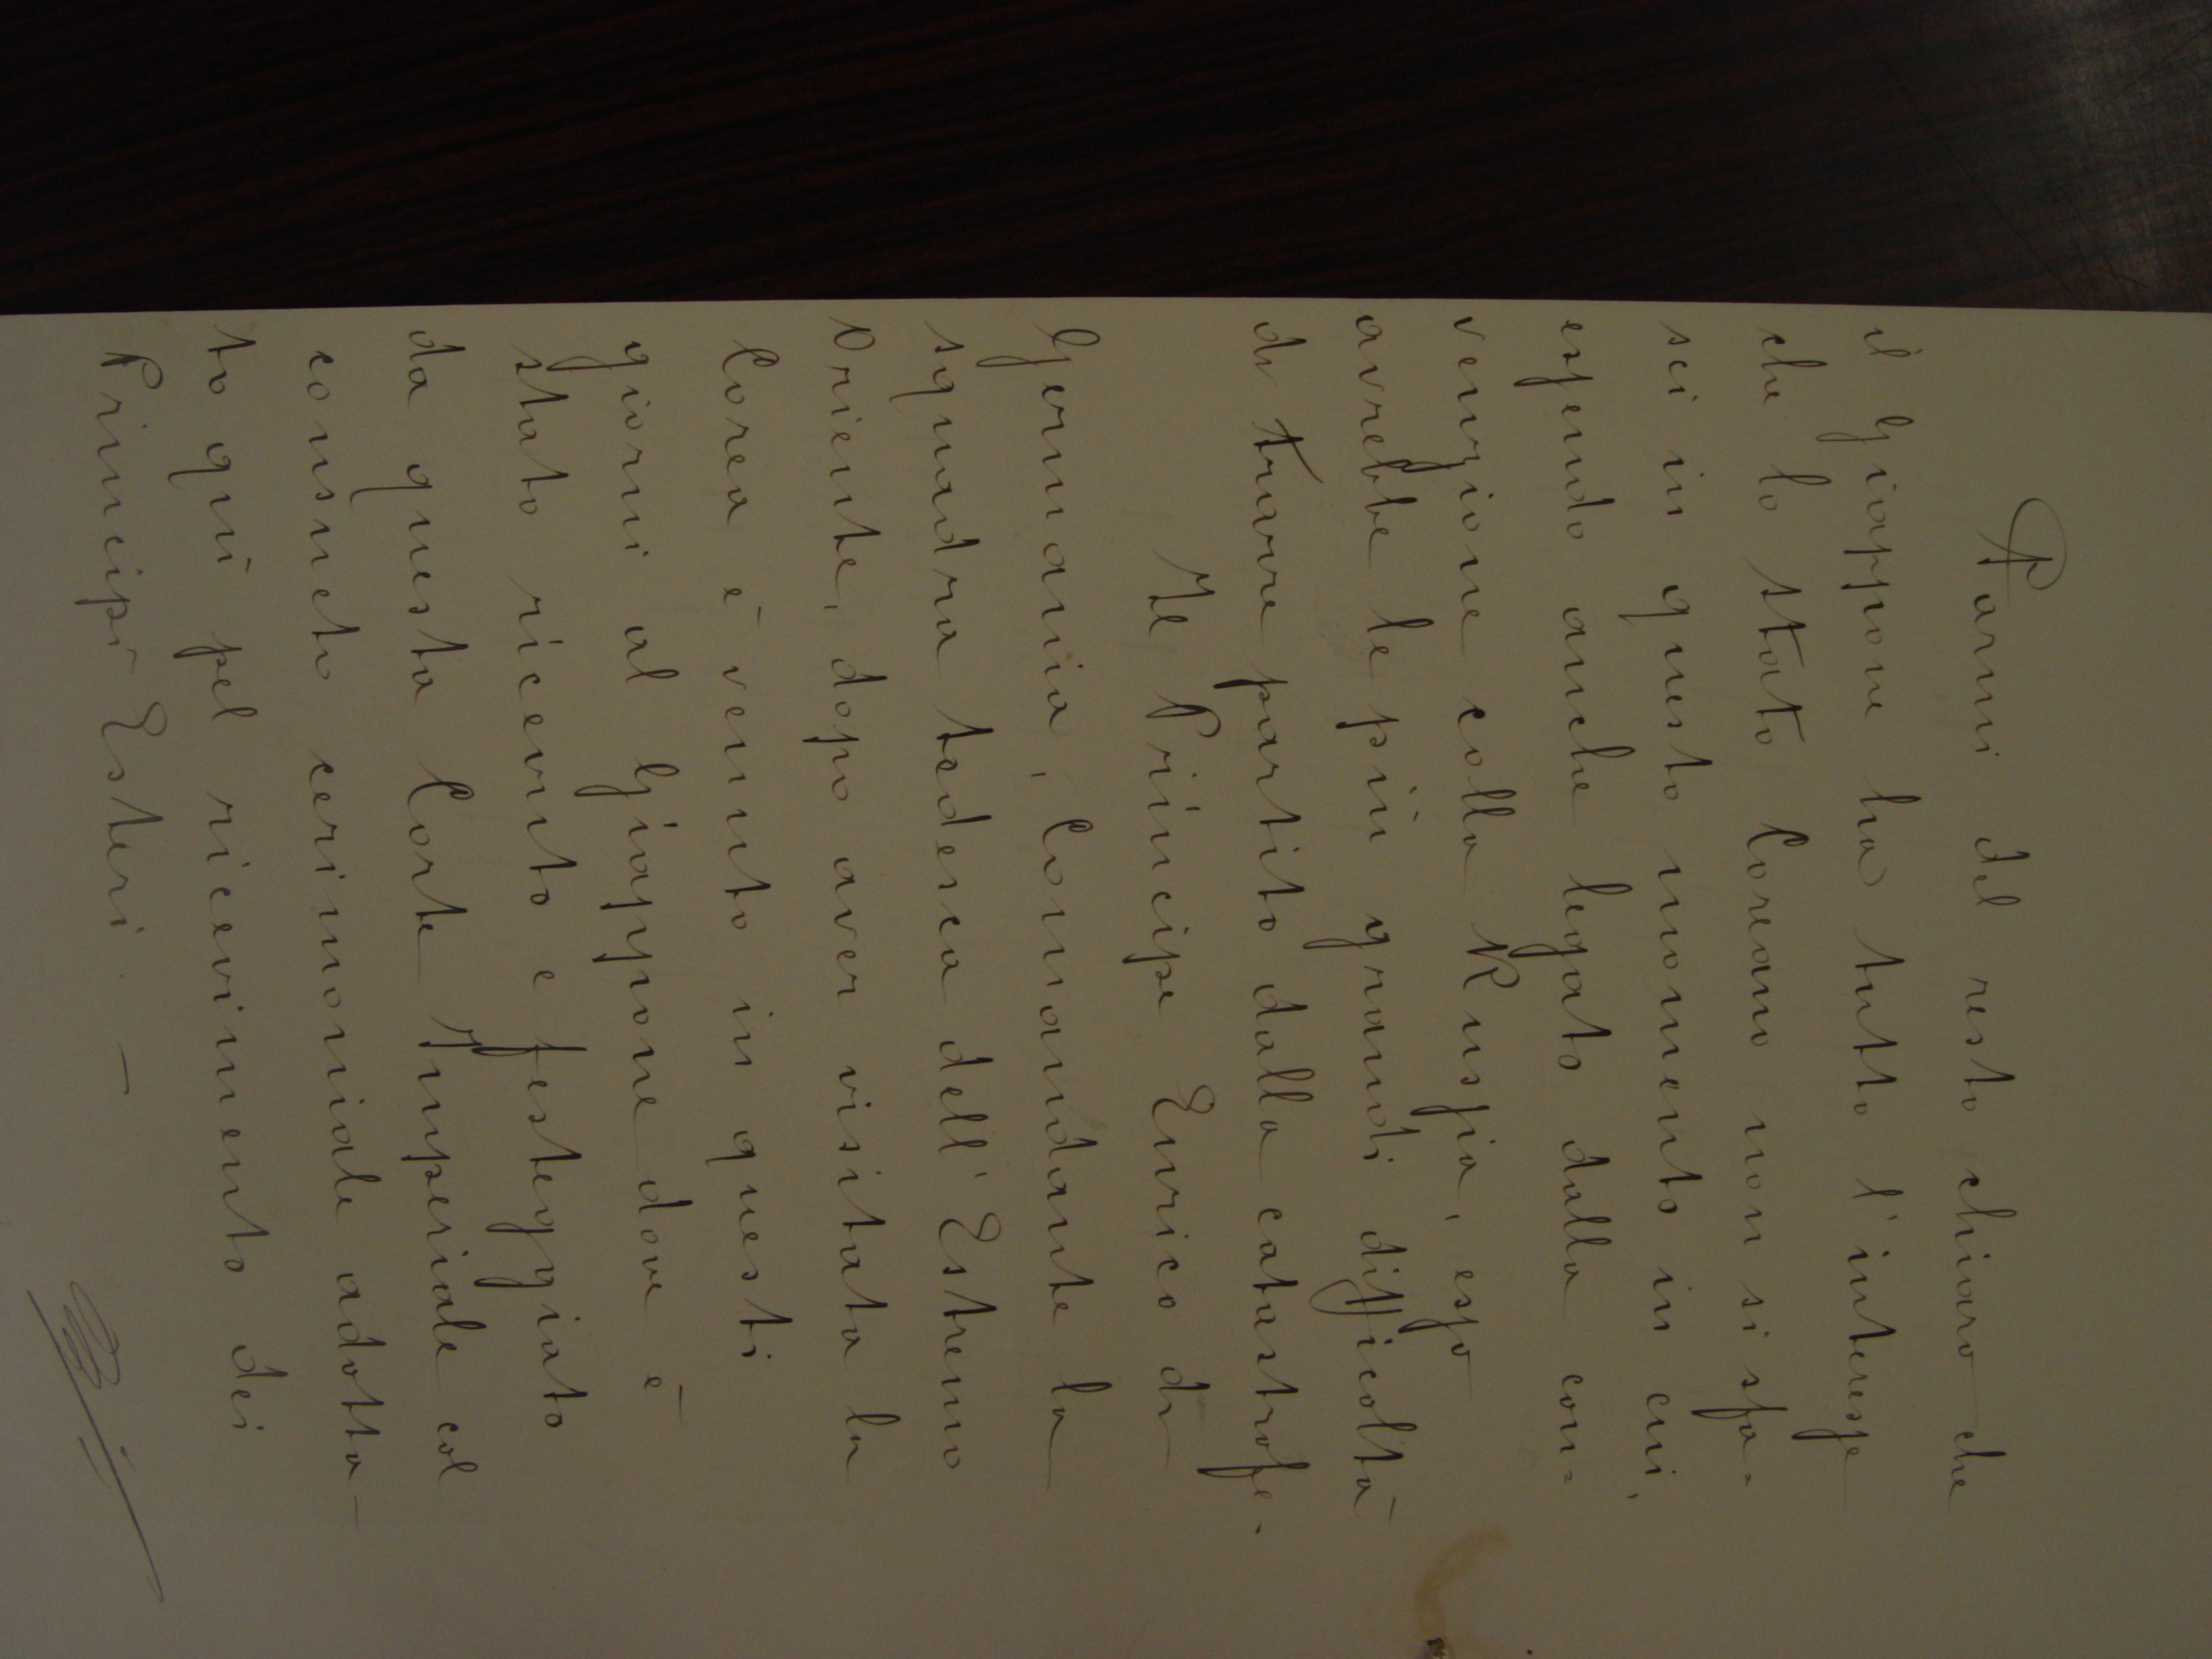 Parmi del resto chiaro che
il Giappone ha tutto l'interesse
che lo stato Coreano non si sfa=
sci in questo momento in cui,
essendo anche legato dalla con=
venzione colla Russia, esso
avrebbe le più grandi difficoltà
di trarre partito dalla catastrofe.
Il Principe Enrico di
Germania, Comandante la
squadra tedesca dell'Estremo
Oriente, dopo aver visitata la
Corea è venuto in questi
giorni al Giappone dove è
stato ricevuto e festeggiato
da questa Corte Imperiale col
consueto cerimoniale adotta-
to quì pel ricevimento dei
Principi Esteri. —